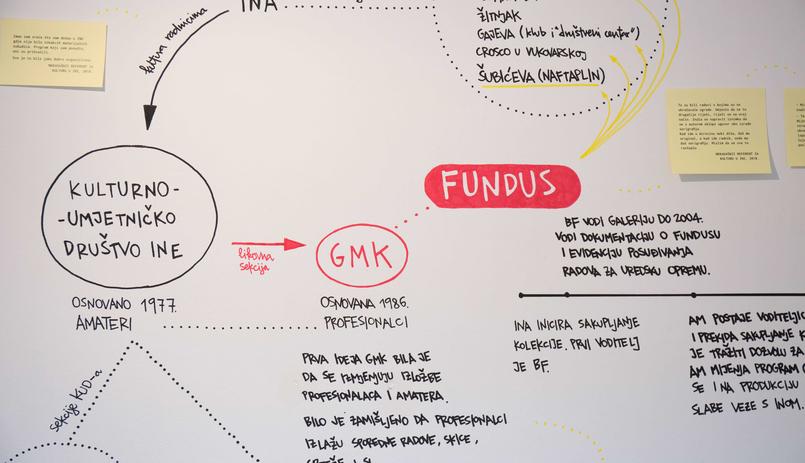 INA
kulturna radnicima
ŽITNJAK
GAJEVA (klub i "društveni centar")
CROSCO U VUKOVARSKOJ
ŠUBIĆEVA (NAFTAPLIN)
FUNDUS
KULTURNO-
-UMJETNIČKO
DRUŠTVO INE
likovna
sekcija
GMK
OSNOVANO 1977.
AMATERI
OSNOVANA 1986.
PROFESIONALCI
BF VODI GALERIJU DO 2004.
VODI DOKUMENTACIJU O FUNDUSU
I EVIDENCIJU POSUĐIVANJA
RADOVA ZA UREDSKU OPREMU.
INA INICIRA SAKUPLJANJE
KOLEKCIJE. PRVI VODITELJ
JE BF.
AM POSTAJE VODITELJIC
I PREKIDA SAKUPLJANJE K
JE TRAŽITI DOZVOLU ZA
AM MIJENJA PROGRAM G
SE I NA PRODUKCIJU
SLABE VEZE S INOM.
sekcije KUD-a
PRVA IDEJA GMK BILA JE
DA SE IZMJENJUJU IZLOŽBE
PROFESIONALACA I AMATERA.
BILO JE ZAMIŠLJENO DA PROFESIONALCI
IZLAŽU SPOREDNE RADOVE, SKICE,